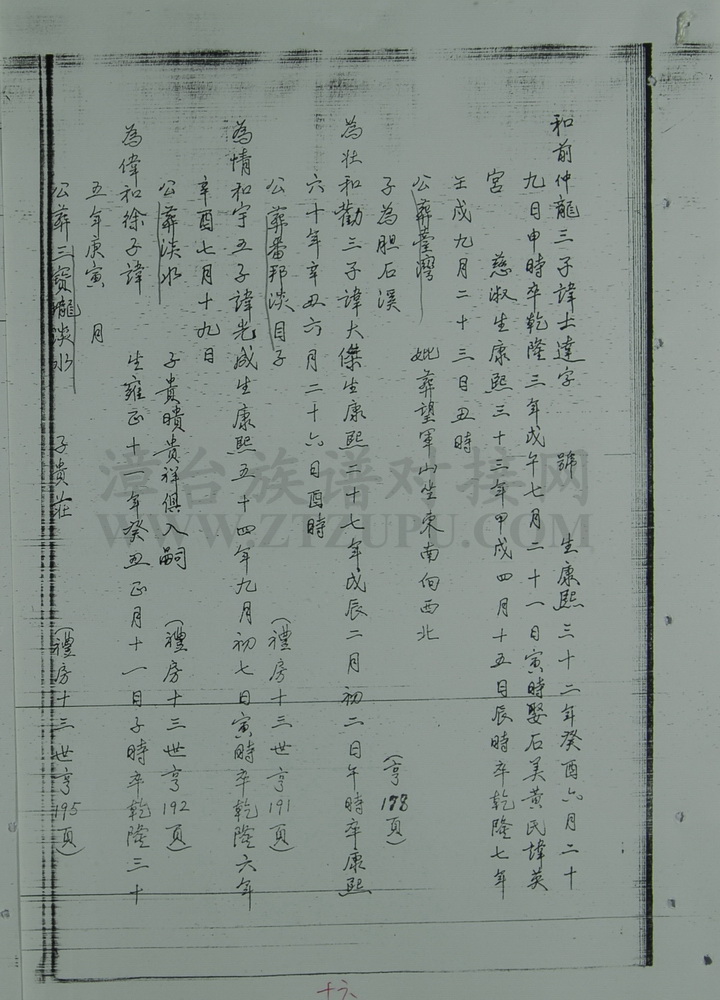 和前仲龍三子諱士達字 號 生康熙三十二年癸酉六月二十
九日申時卒乾隆三年戊午七月二十一日寅時娶石美黃氏諱英
宮 慈淑生康熙三十三年甲戌四月十五日辰時卒乾隆七年
壬戌九月二十三日丑時
公葬臺灣 妣葬望軍山坐東南向西北
子為胆石溪 (亨178頁)
為壯和勸三子諱大傑生康熙二十七年戊辰二月初二日午時卒康熙
六十年辛丑六月二十六日酉時
公葬番邦淡目子 (禮房十三世亨191頁)
為情和宇五子諱光咸生康熙五十四年九月初七日寅時卒乾隆六年
辛酉七月十九日
公葬淡水 子貴曊貴祥俱入嗣 (禮房十三世亨192頁)
為偉和徐子諱 生雍正十一年癸丑正月十一日子時卒乾隆三十
五年庚寅 月
公葬三寶龍淡水 子貴莊 (禮房十三世亨195頁)
十六
漳台族谱对接网
WWW.ZTZUPU.COM